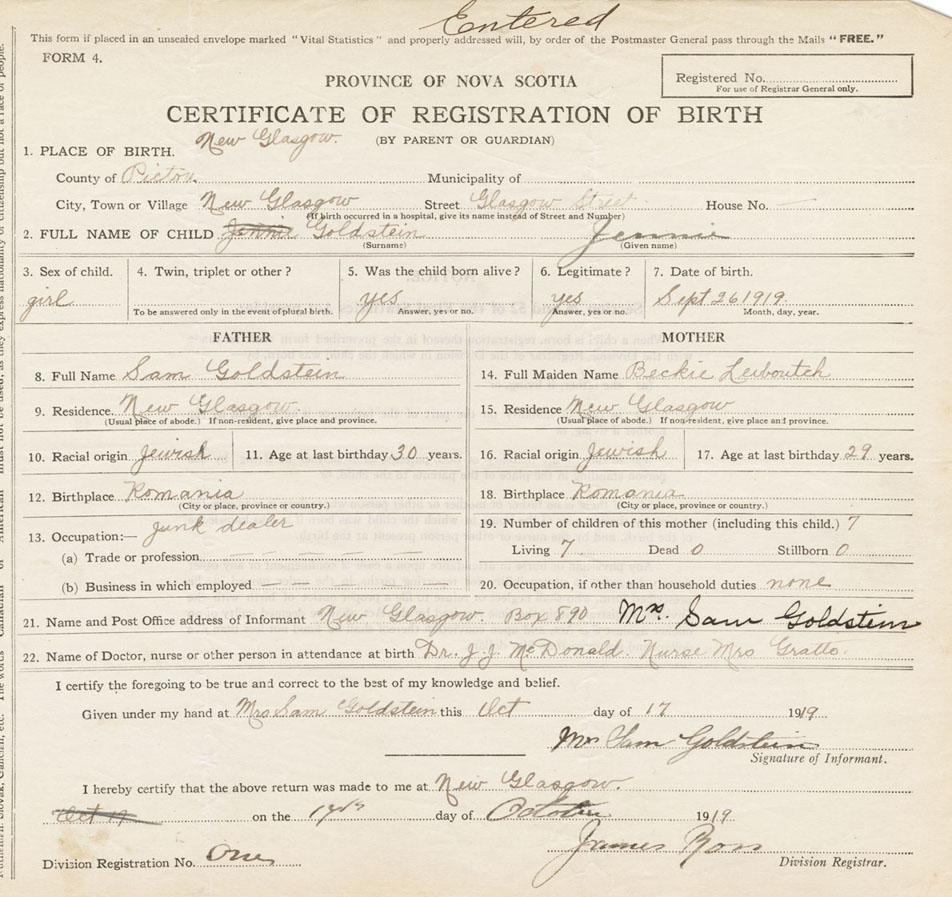 Entered
This form if placed in an unsealed envelope marked "Vital Statistics" and properly addressed will, by order of the Postmaster General pass through the Mails "FREE."
FORM 4.
Registered No.
For use of Registrar General only.
PROVINCE OF NOVA SCOTIA
CERTIFICATE OF REGISTRATION OF BIRTH
(BY PARENT OR GUARDIAN)
1. PLACE OF BIRTH. New Glasgow.
County of Pictou. Municipality of
City, Town or Village New Glasgow Street Glasgow Street House No. —
(If birth occurred in a hospital, give its name instead of Street and Number)
2. FULL NAME OF CHILD Jennie Goldstein Jennie
(Surname) (Given name)
3. Sex of child. 4. Twin, triplet or other? 5. Was the child born alive? 6. Legitimate? 7. Date of birth.
girl yes yes Sept 26 1919.
To be answered only in the event of plural birth. Answer, yes or no. Answer, yes or no. Month, day, year.
FATHER MOTHER
8. Full Name Sam Goldstein 14. Full Maiden Name Beckie Leiboutch
9. Residence. New Glasgow. 15. Residence New Glasgow
(Usual place of abode.) If non-resident, give place and province. (Usual place of abode.) If non-resident, give place and province.
10. Racial origin Jewish 11. Age at last birthday 30 years. 16. Racial origin Jewish 17. Age at last birthday 29 years.
12. Birthplace Romania 18. Birthplace Romania
(City or place, province or country.) (City or place, province or country.)
13. Occupation:— junk dealer 19. Number of children of this mother (including this child.) 7
(a) Trade or profession Living 7 Dead 0 Stillborn 0
(b) Business in which employed 20. Occupation, if other than household duties none
21. Name and Post Office address of Informant New Glasgow. Box 890 Mrs. Sam Goldstein
22. Name of Doctor, nurse or other person in attendance at birth Dr. J. J. McDonald. Nurse Mrs Gratto.
I certify the foregoing to be true and correct to the best of my knowledge and belief.
Given under my hand at Mrs Sam Goldstein this Oct day of 17 1919
Mrs Sam Goldstein
Signature of Informant.
I hereby certify that the above return was made to me at New Glasgow.
Oct 17 on the day of October 1919.
James Ross
Division Registration No. One Division Registrar.